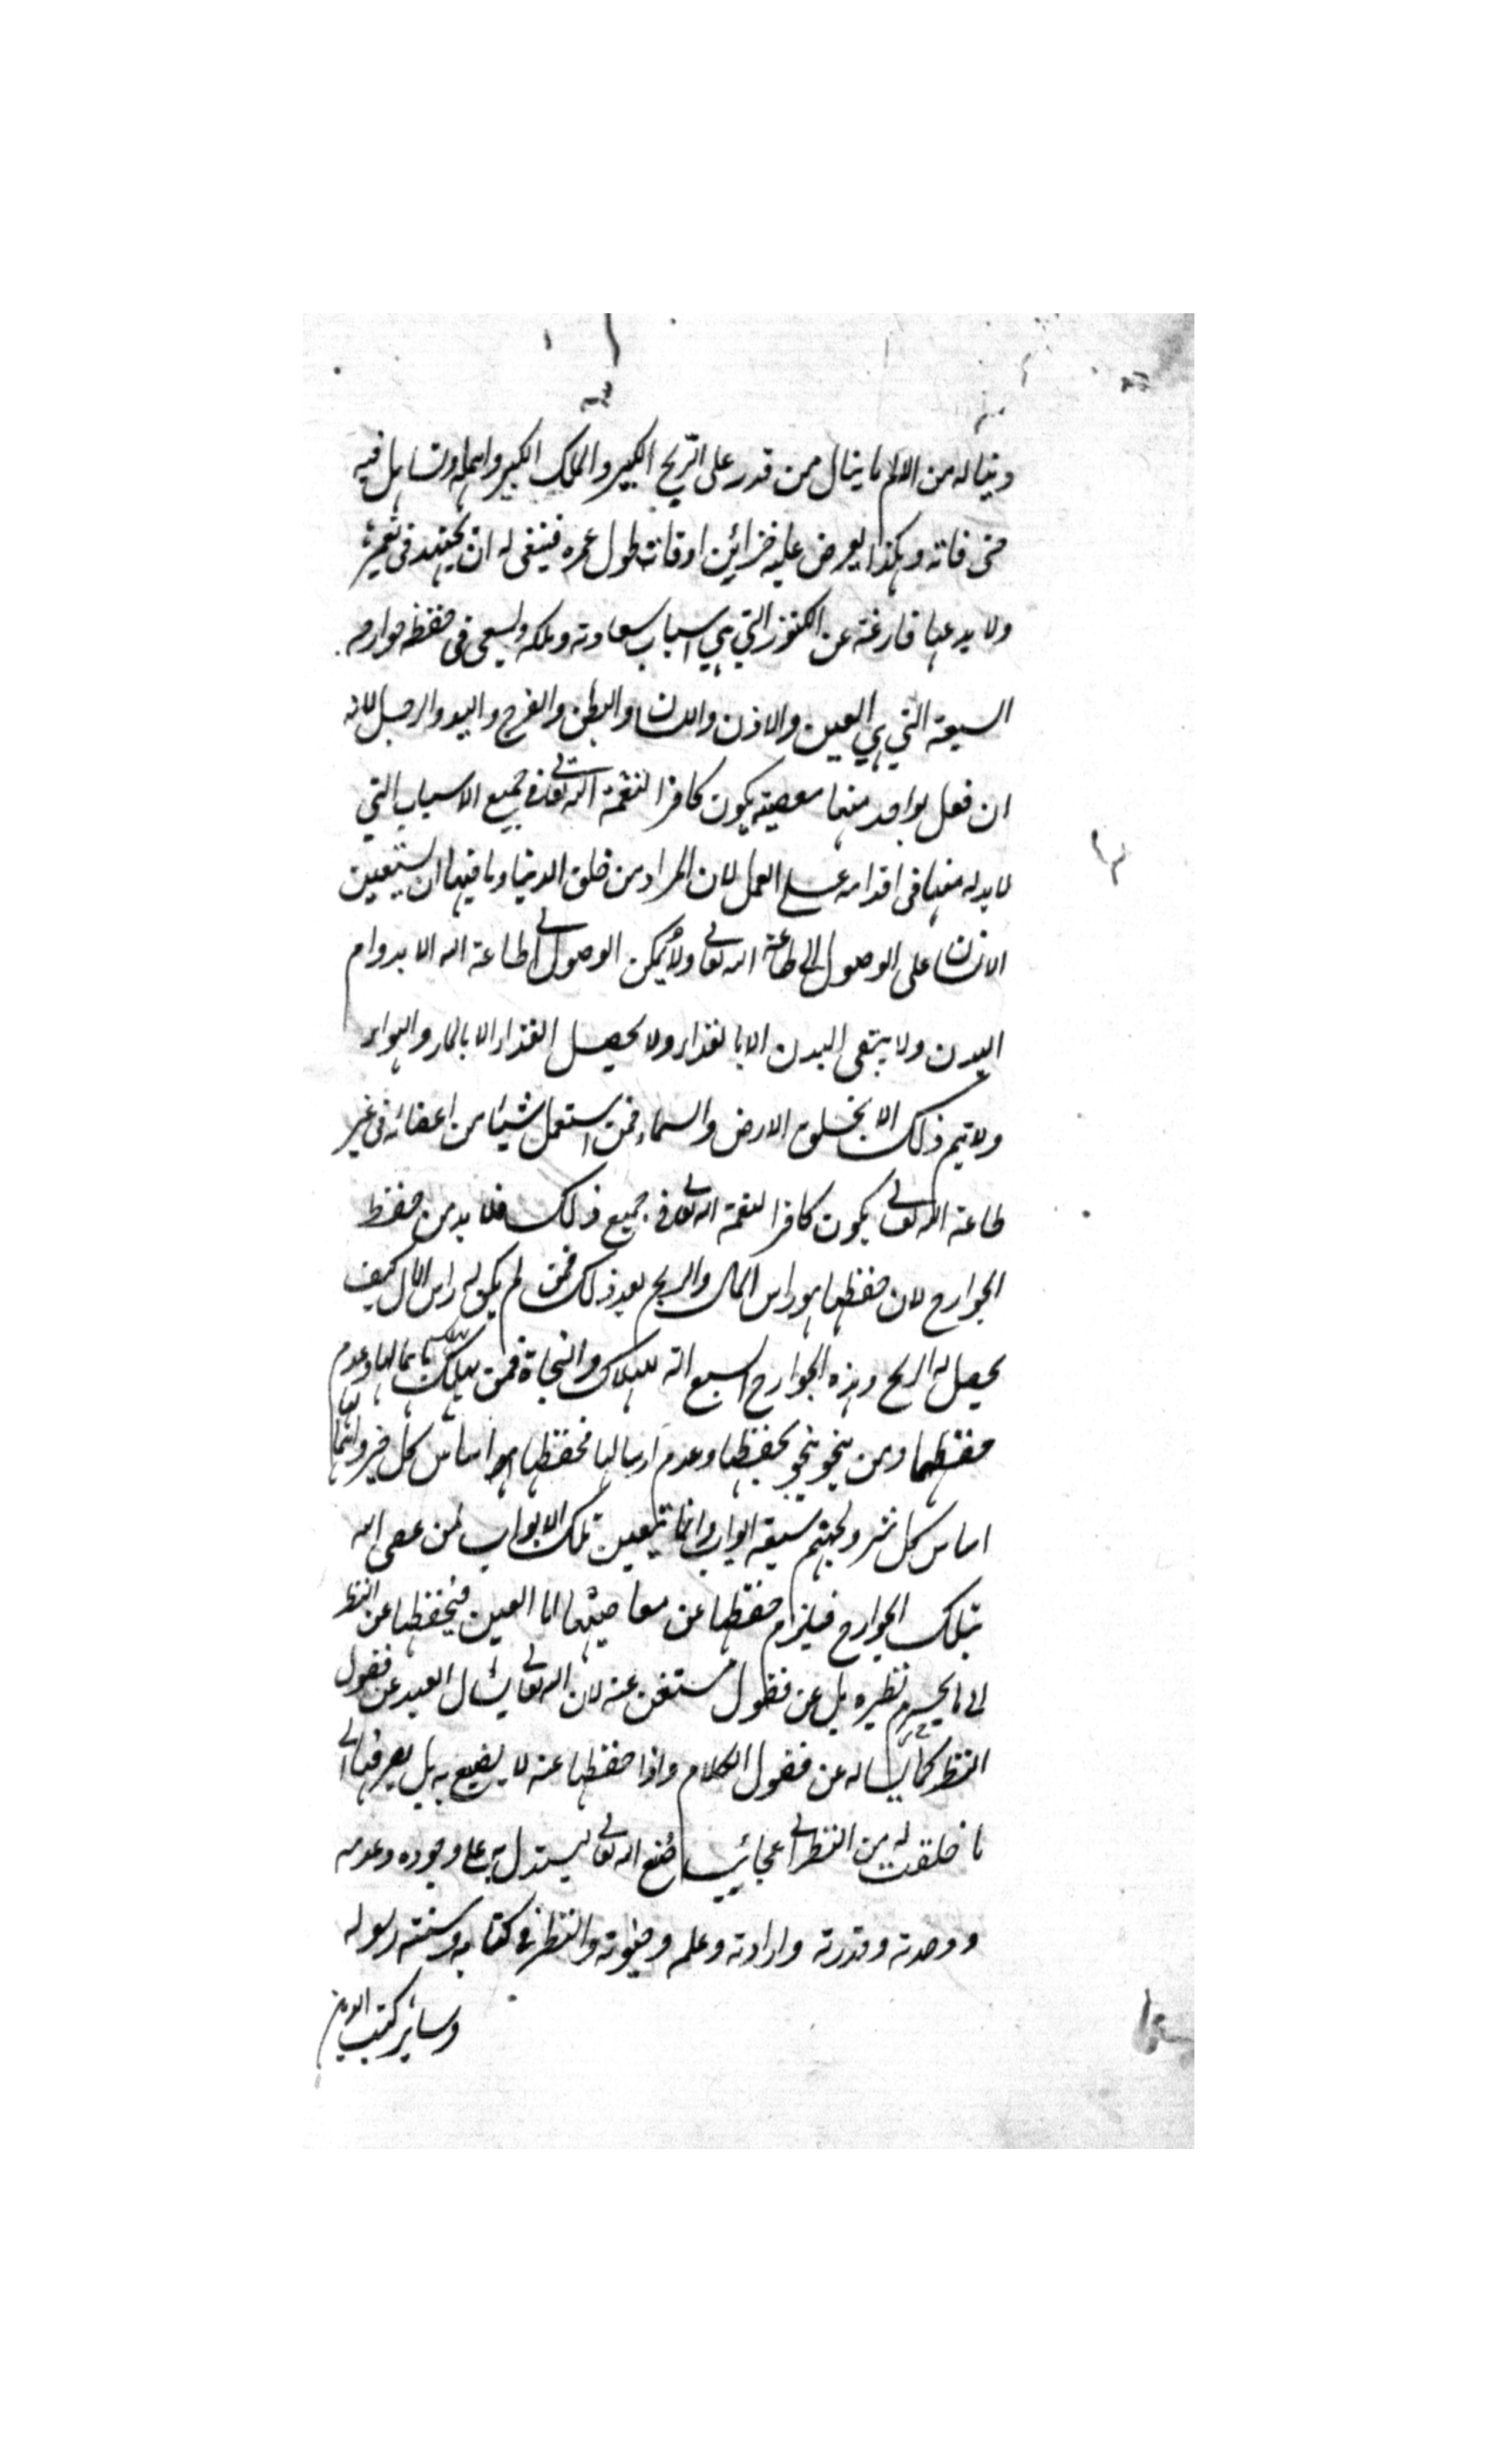 ويناله من الالم ما ينال ممن قدر على الربح الكبير والملك الكبير واهمله وتساهل فيه
حتى فاته وهكذا يعرض عليه خزائن اوقاته طول عمره فينبغى له ان يجتهد فى تعميره
ولا يدعها فارغة عن الكنوز التي هي اسباب سعادته وملكه وليسعى فى حفظ جوارحه
السبعة التي هي العين والاذن واللسان والبطن والفرج واليد والرجل لانه
ان فعل بواحد منها معصية يكون كافرا لنعمة الله تعالى في جميع الاسباب التي
لا بد له منها فى اقدامه على العمل لان المراد من خلق الدنيا وما فيها ان يستعين
الانسان على الوصول الى طاعة الله تعالى ولا يمكن الوصول الى طاعة الله الا بدوام
البدن ولا يبقى البدن الا بالغذاء ولا يحصل الغذاء الا بالماء والهواء
ولا يتم ذلك الا بخلق الارض والسماء فمن استعمل شيئا من اعضائه فى غير
طاعة الله تعالى يكون كافرا لنعمة الله تعالى فى جميع ذلك فلا بد من حفظ
الجوارح لان حفظها هو راس المال والربح بعد ذلك فمن لم يكن له راس المال كيف
يحصل له الربح وهذه الجوارح السبع الة للهلاك والنجاة فمن يهلك يهلك باهمالها وعدم
حفظها ومن ينجو ينجو بحفظها وعدم ارسالها فحفظها هو اساس كل خير واهمالها
اساس كل شر ولجهنم سبعة ابواب وانما يتعين تلك الابواب لمن عصى الله
بتلك الجوارح فيلزم حفظها عن معاصيها اما العين فيحفظها عن النظر
الى ما يحرم نظيره بل عن فضول مستغن عنه لان الله تعالى يسأل العبد عن فضول
النظر كما يساله عن فضول الكلام واذا حفظها عنه لا يضيع به بل يصرفها الى
ما خلقت له من النظر الى عجائب صنع الله تعالى ليستدل به على وجوده وعدمه
ووحدته وقدرته وارادته وعلمه وحيوته والنظر فى كتابه وسنة رسوله
وسائر كتب الدين